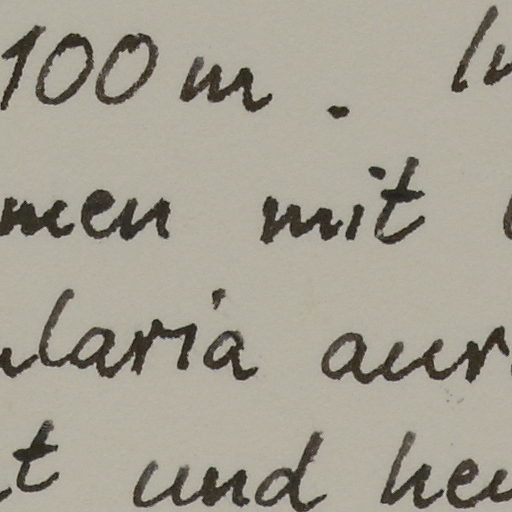 100m. In
men mit
laria aur
t und heu